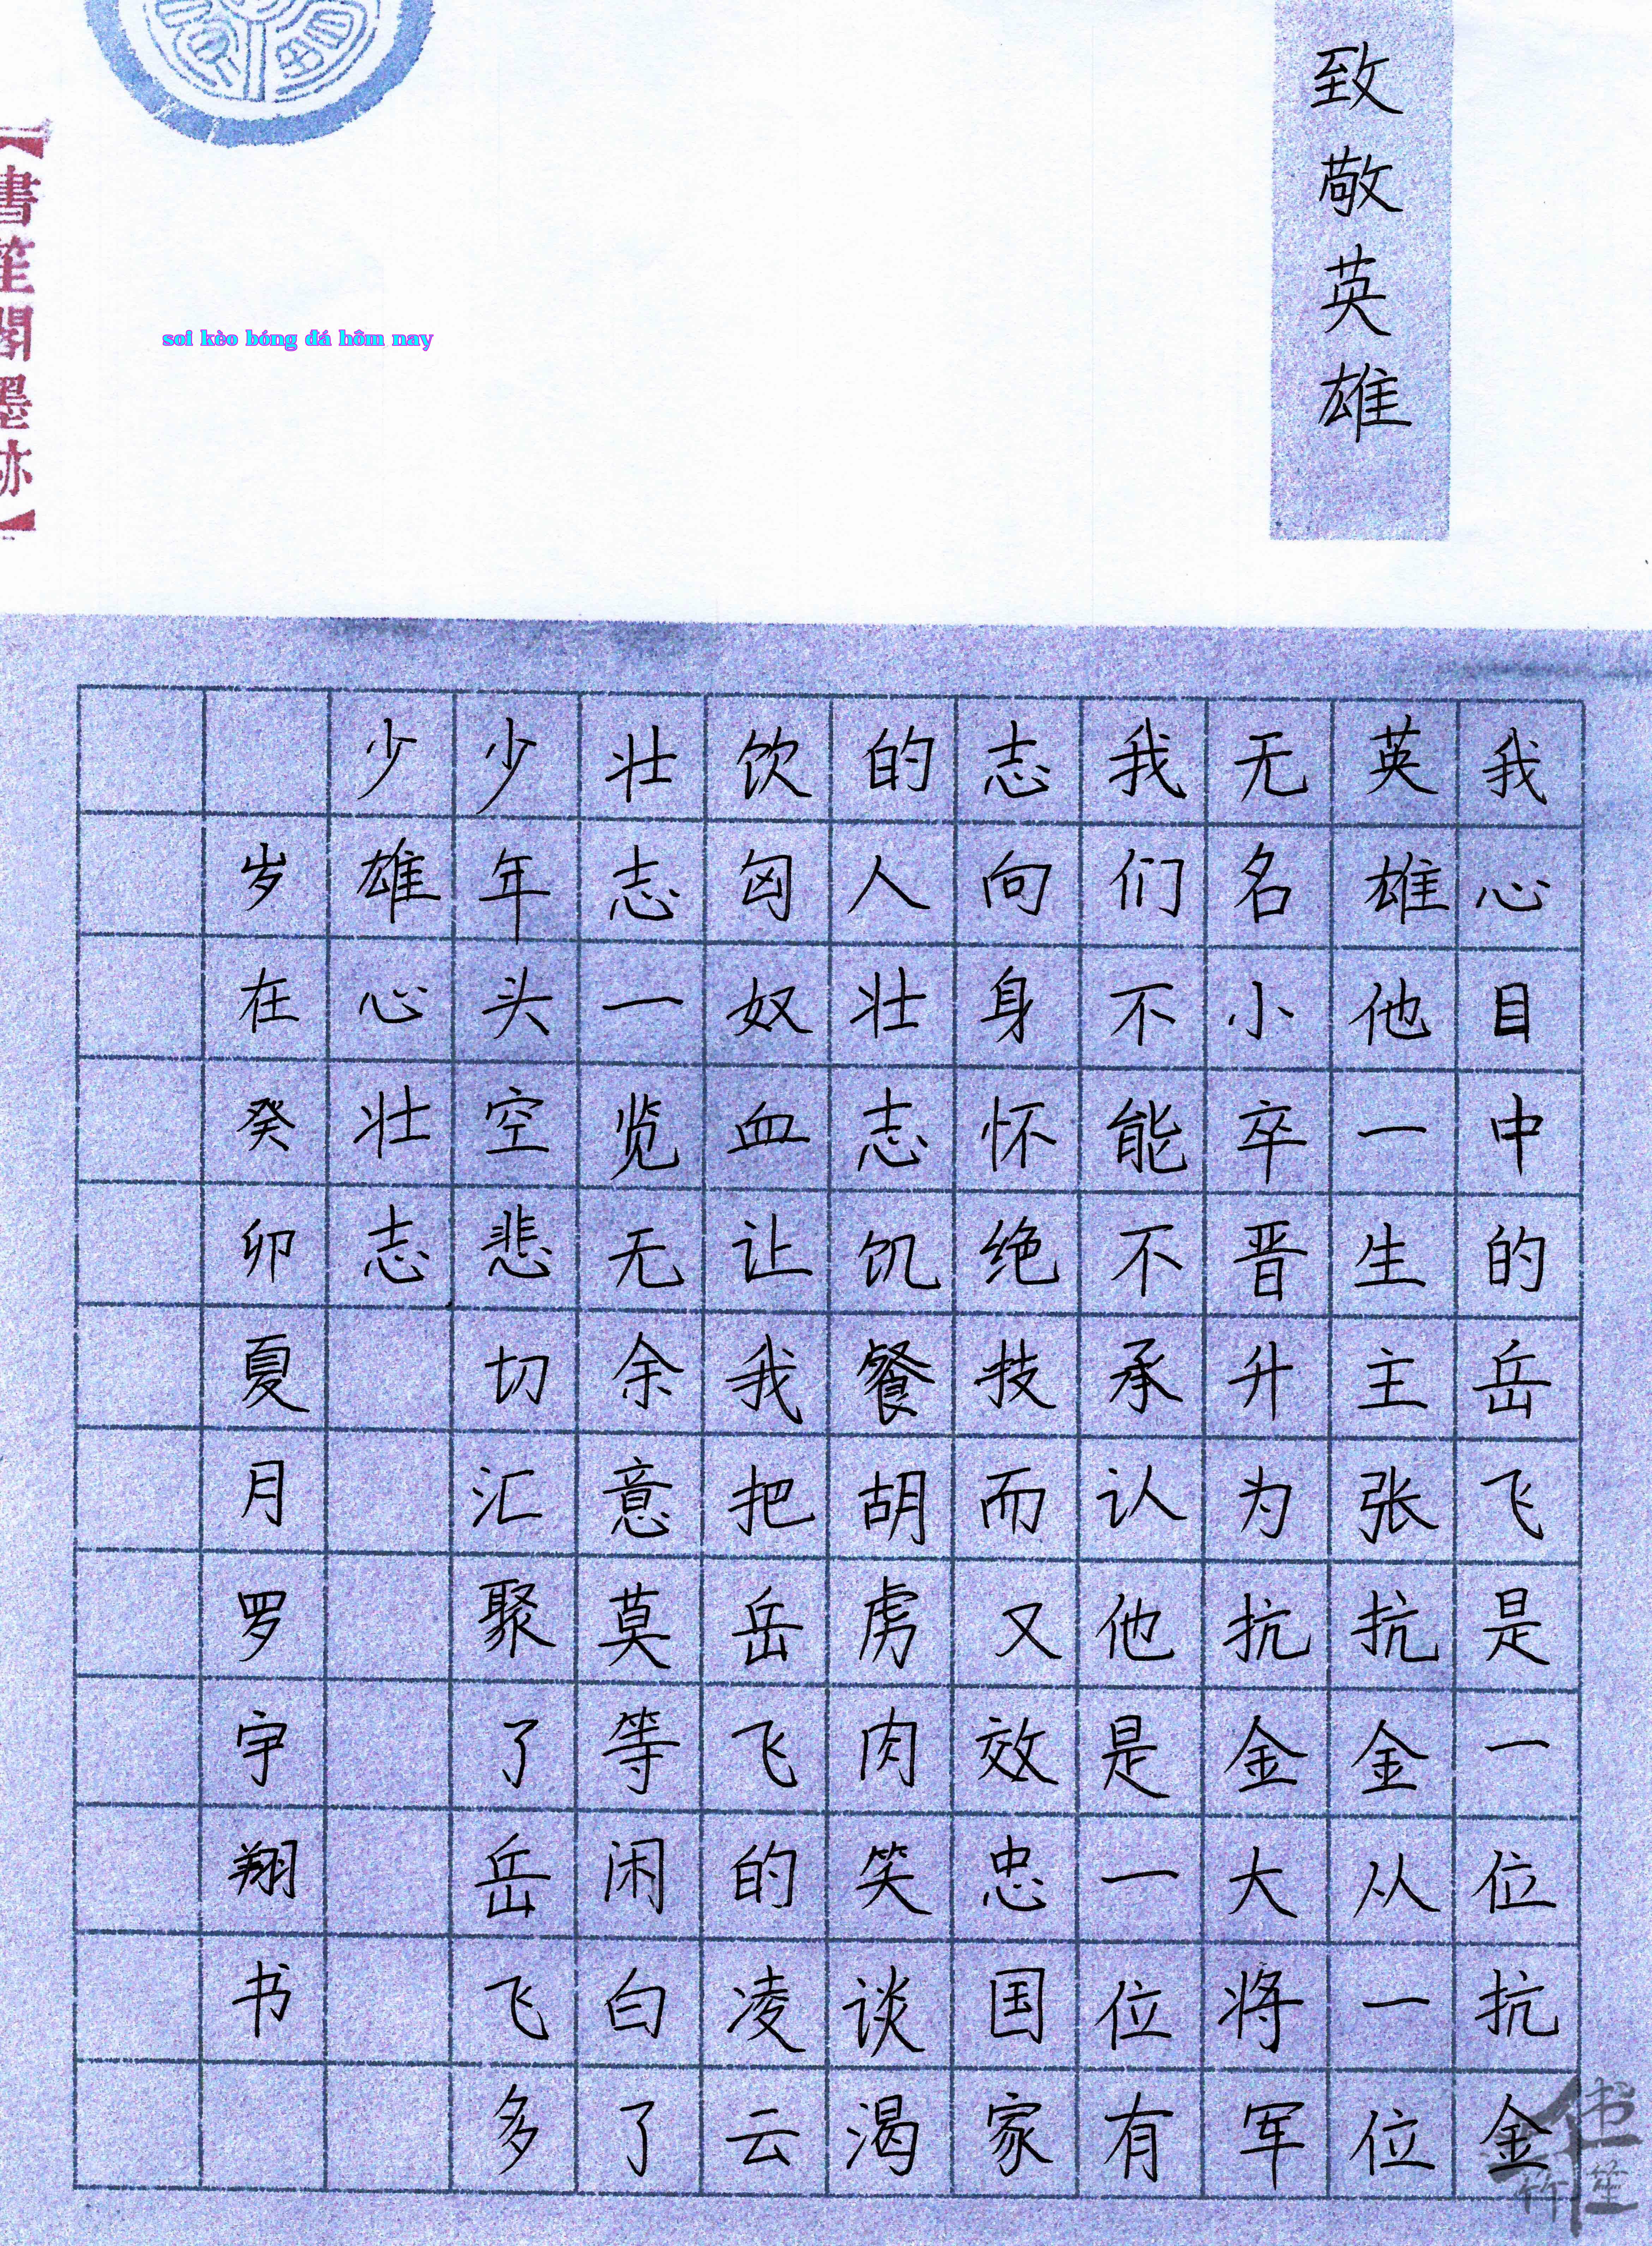 致敬英雄
我心目中的岳飞是一位抗金
英雄他一生主张抗金从一位
无名小卒晋升为抗金大将军
我们不能不承认他是一位有
志向身怀绝技而又效忠国家
的人壮志饥餐胡虏肉笑谈渴
饮匈奴血让我把岳飞的凌云
壮志一览无余意莫等闲白了
少年头空悲切汇聚了岳飞多
少雄心壮志
岁在癸卯夏月罗宇翔书
soi kèo bóng đá hôm nay
【書笙閣墨跡】
书笙